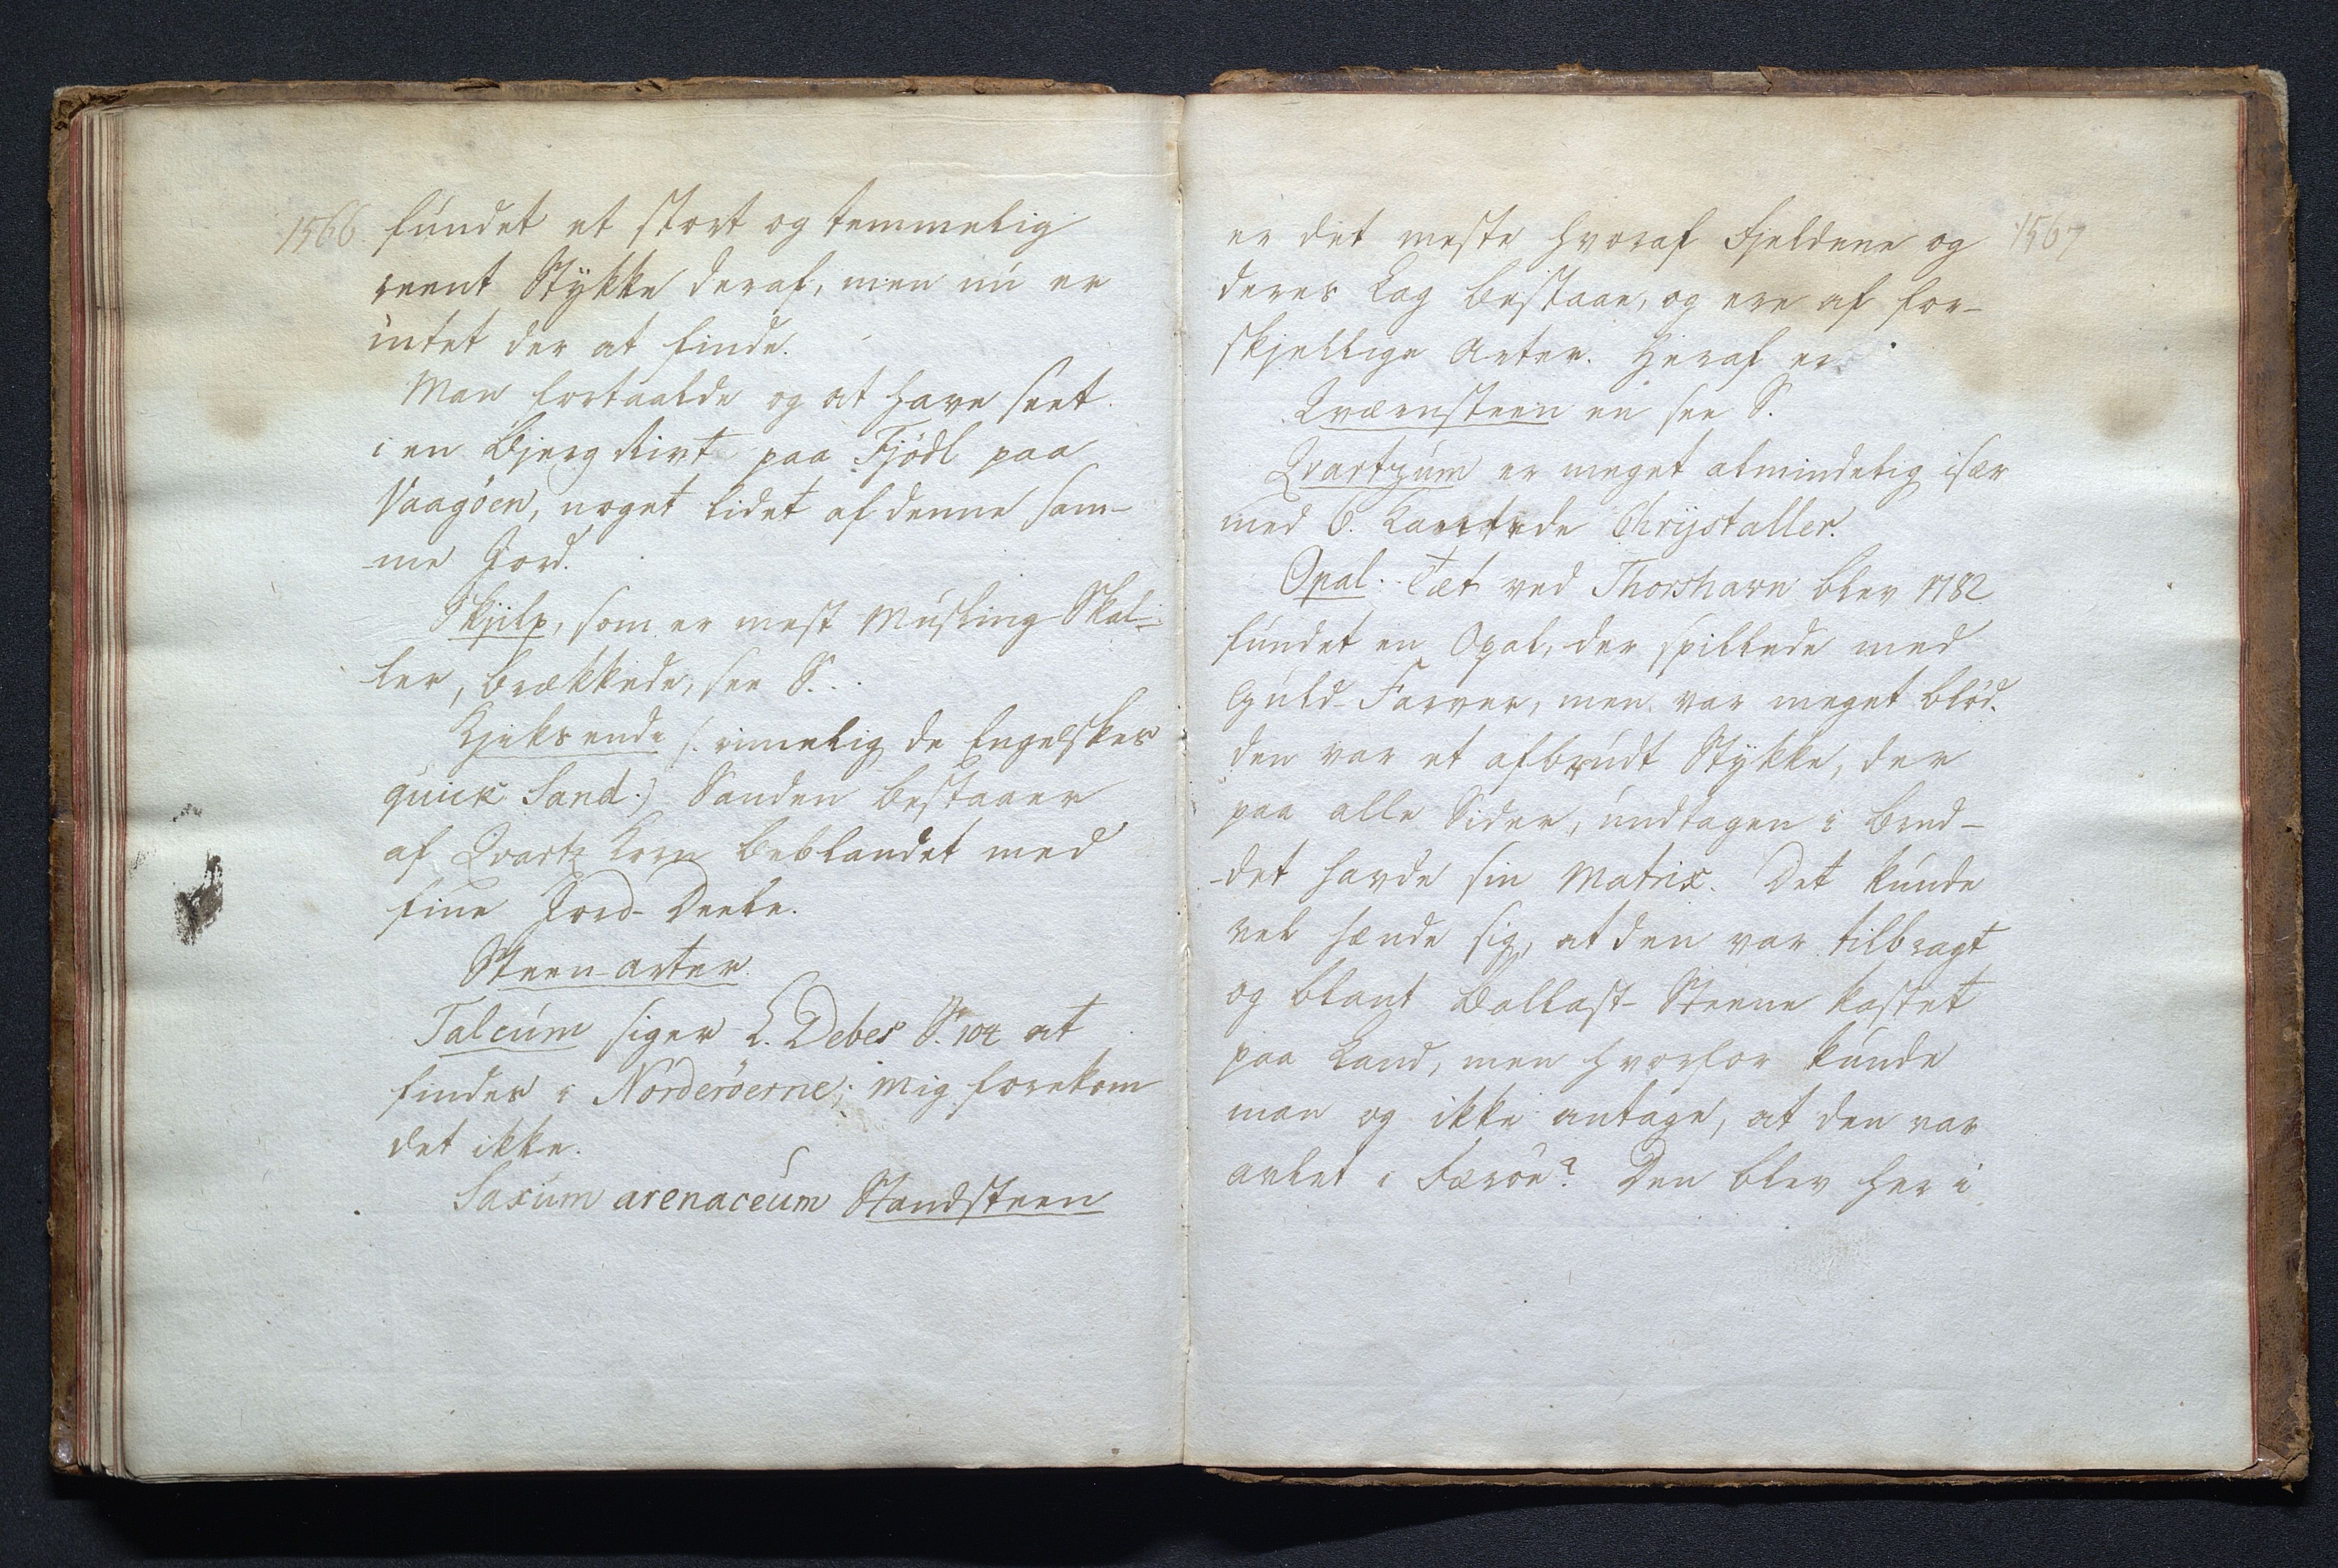 1566
fundet et stort og temmelig
reent Stykke deraf, men nu er
intet der at finde.
Man fortaalde og at have seet
i en Bjerg Rivt paa Fjödl paa
Vaagöen, noget lidet af denne sam-
me Jord.
Skjilp, som er mest Musling Skal-
ler, brækkede, see S...
Kjeksende (: rimelig de Engelskes
quick Sand.) Sanden bestaaer
af Qvartz Korn beblandet med
fine Jord-Deele.
Steen-arter.
Talcum siger L. Debes S. 104 at
findes i Norderöerne; mig forekom
det ikke.
Saxum arenaceum Standsteen
1567
er det meste hvoraf Fjeldene og
deres Lag bestaae, og ere af for-
skjellige Arter. Heraf er
Qværnsteen en see S.
Qvartzum er meget almindelig især
med 6. Kantede Chrystaller.
Opal. Tæt ved Thorshavn blev 1782
fundet en Opal, der spillede med
Guld-Farver, men var meget blöd.
den var et afbrudt Stykke, der
paa alle Sider, undtagen i brud-
det havde sin Matrix. Det kunde
vel hænde sig, at den var tilbragt
og blant Ballast-Steene kastet
paa Land, men hvorfor kunde
man og ikke antage, at den var
avlet i Færöe? Den blev her i